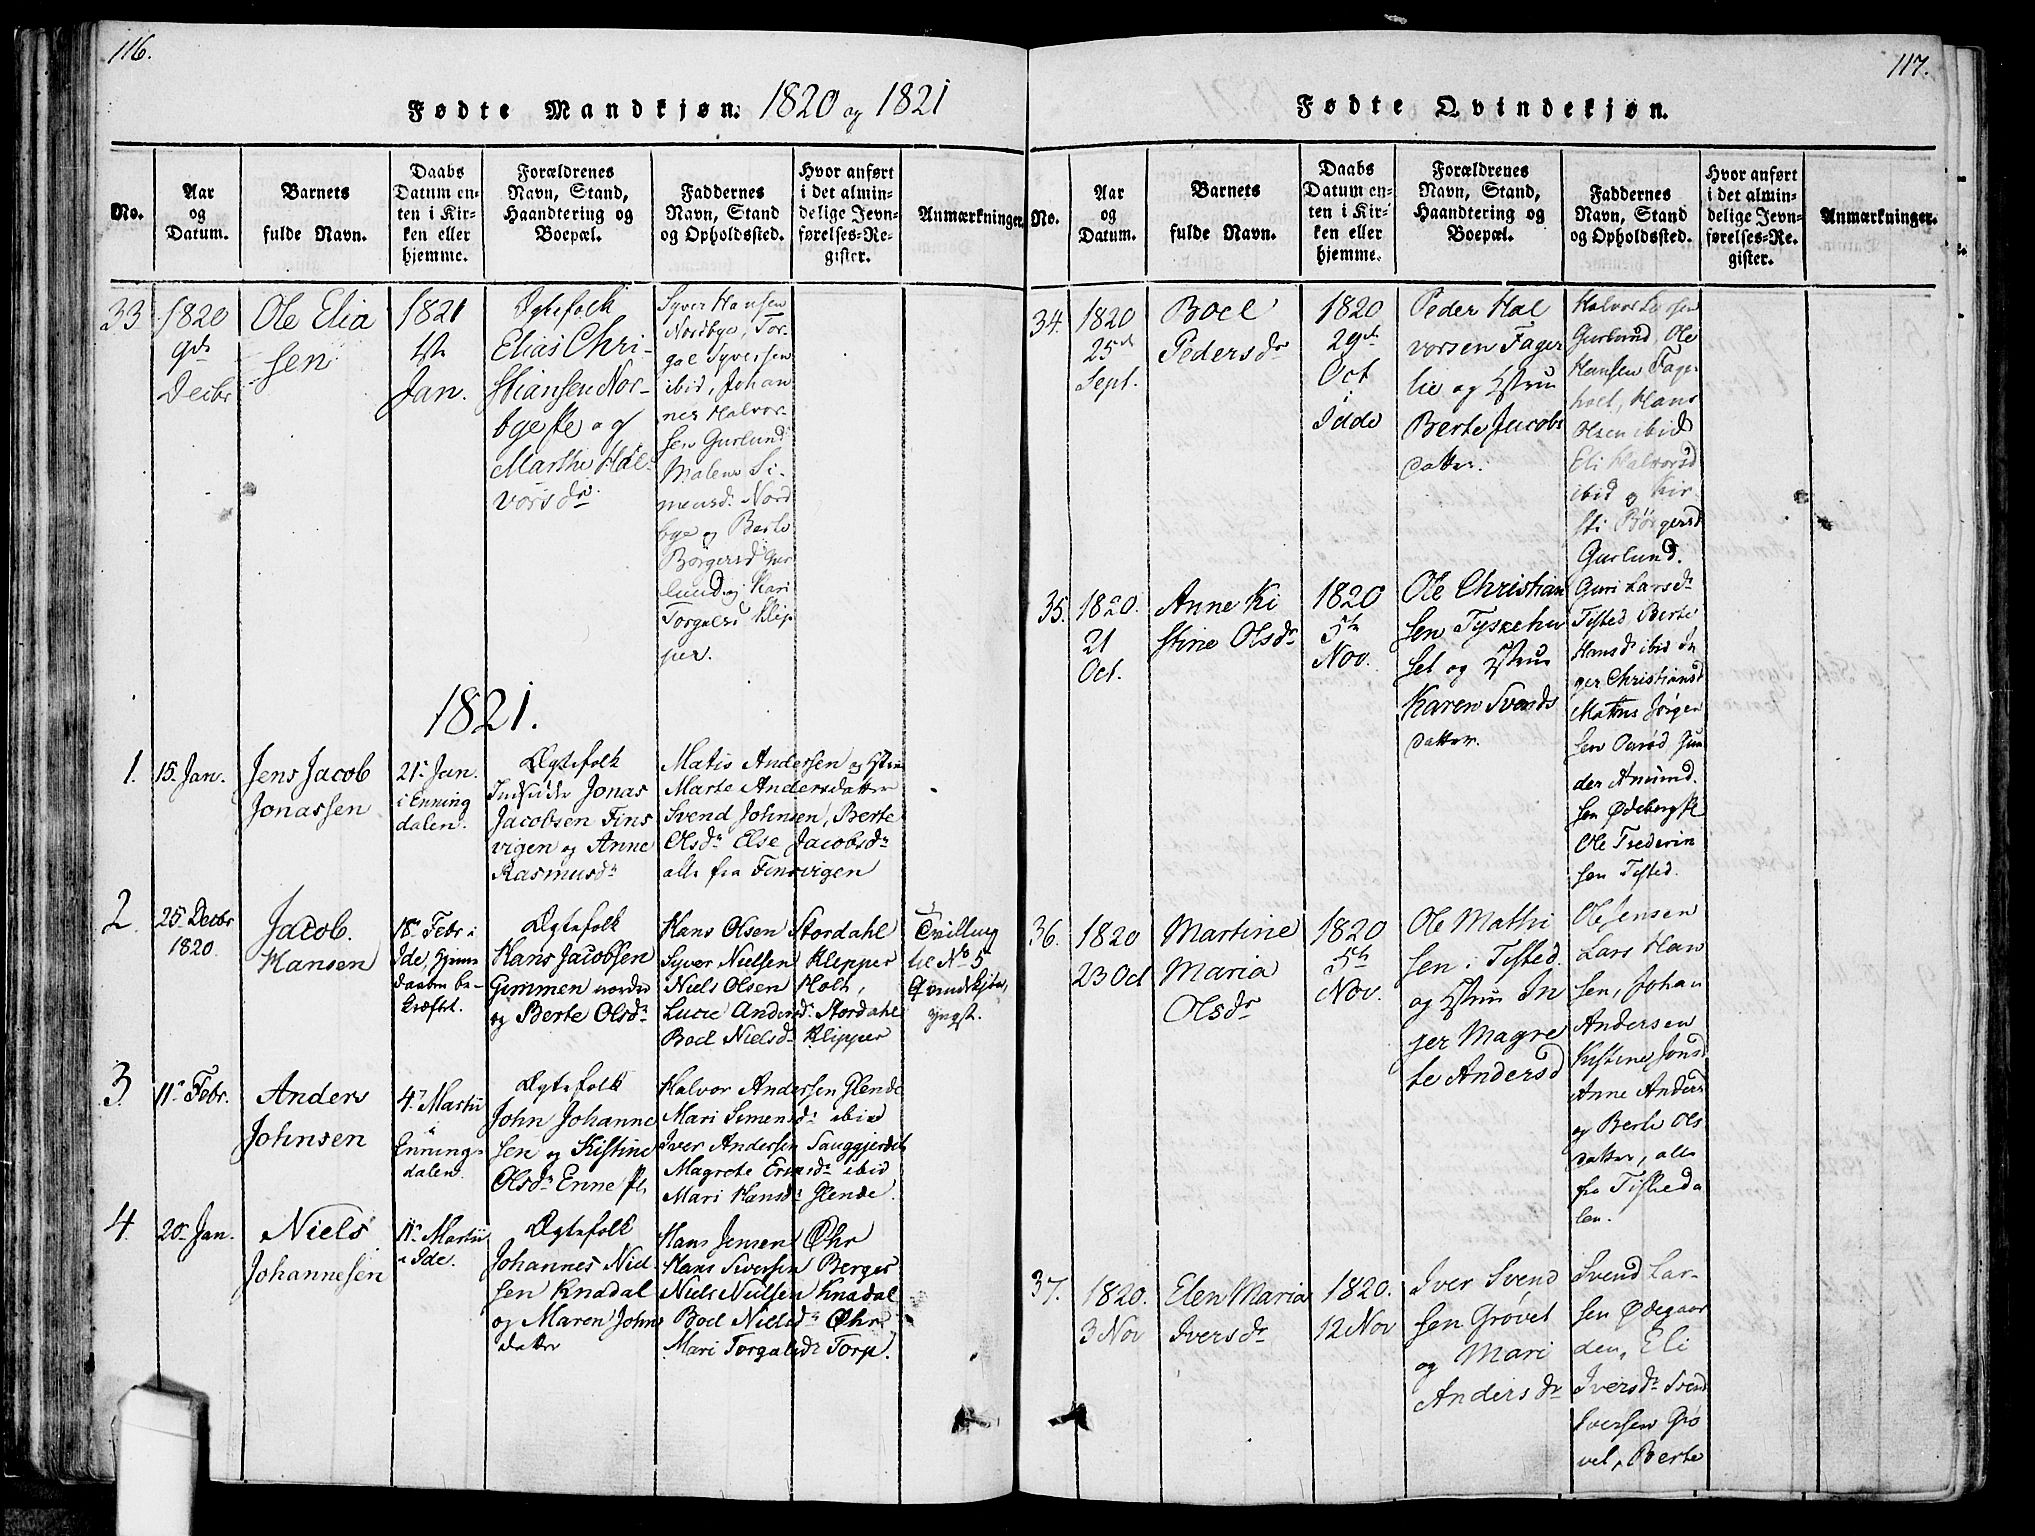 116.
Fødte Mandkjøn. 1820 og 1821
No.
Aar
og
Datum.
Barnets
fulde Navn.
Daabs
Datum en-
ten i Kir-
ken eller
hjemme.
Forældrenes
Navn, Stand,
Haandtering og
Boepæl.
Faddernes
Navn, Stand
og Opholdssted.
Hvor anført
i det almin-
delige Jevn-
førelses-Re-
gister.
Anmærkninger.
33
1820
9de
Decbr
Ole Elia
sen
1821
1te
Jan.
Ægtefolk
Elias Chri-
stiansen Nor-
bye og
Marthe Hal-
vorsdr
Syver Hansen
Nordbye, Tor-
gal Syversen
ibid, Johan
nes Halvor-
sen Gurlund
Malene Si-
mensd. Nord
bye og Berte
Börgersd Gur
lund og Kari
Torgalsd Klep
per.
1821.
1.
15. Jan.
Jens Jacob
Jonassen
21. Jan.
i Enning
dalen.
Ægtefolk
Inds Jonas
Jacobsen Fins
vigen og Anne
Rasmusdr
Matis Andersen og Hstru
Marte Andersdatter
Svend Johnsen, Berte
Olsdr Else Jacobsdr
alle fra Finsvigen
2.
25. Decbr
1820.
Jacob.
Hansen
18. Febr i
Ide, hjemme
daaben be-
kræftet.
Ægtefolk
Hans Jacobsen
Gimmen nordre
og Berte Olsdr
Hans Olsen Stordahl
Syver Nielsen Klepper
Niels Olsen Holt,
Lucie Andersdr Stordahl
Boel Nielsdr Klepper
Tvilling
til No 5
Qvindekjøn,
yngst.
3.
11. Febr.
Anders
Johnsen
4. Martii
i
Ennings-
dalen.
Ægtefolk
John Johanne
sen og Kistine
Olsdr Enne Pl.
Halvor Andersen Glende
Mari Simensdr ibid
Iver Andersen Sauggjerdet
Magrete Ersdr ibid
Mari Hansdr Glende.
4.
20. Jan.
Niels
Johannesen
11. Martii
i Ide.
Ægtefolk
Johannes Niel
sen Knadal
og Maren Johns
datter
Hans Jensen Øhr
Hans Siversen Berger
Niels Nielsen Knadal
Boel Nielsdr Øhr
Mari Torgalsdr Torp.
117.
Fødte Qvindekjøn.
No.
Aar
og
Datum.
Barnets
fulde Navn.
Daabs
Datum en-
ten i Kir-
ken eller
hjemme.
Forældrenes
Navn, Stand,
Haandtering og
Boepæl.
Faddernes
Navn, Stand
og Opholdssted.
Hvor anført
i det almin-
delige Jevn-
førelses-Re-
gister.
Anmærkninger.
34.
1820
25de
Sept.
Boel
Pedersdr
1820
29de
Oct
i
Idde
Peder Hal
vorsen Fager
lie og Hstrue
Berte Jacobs
datter.
Halvor Larsen
Gurlund, Ole
Hansen Fager
holt, Hans
Olsen ibid
Eli Halvorsd
ibid og Kir-
sti Börgersd
Gurlund.
35.
1820.
21
Oct.
Anne Ki
stine Olsdr
1820
5te
Nov.
Ole Christian
sen Tyskehu
set og Hstrue
Karen Svends
datter.
Guri Larsdr
Tisted Berte
Hansdr ibid In
ger Christiansd
Matius Jørgen
sen Gun
der Amund.
sen Ødeberg
Ole Frederik
sen Tisted.
36.
1820
23 Oct
Martine
Maria
Olsdr
1820
5te
Nov.
Ole Mathi
sen i Tisted
og Hstrue In
ger Magre
te Andersd
Ole Jensen
Lars Han
sen, Johan
Andersen
Kistine Jonsd
Anne Anders
og Berte Ols
datter, alle
fra Tisteda
len.
37.
1820.
3 Nov
Elen Maria
Iversdr
1820.
12 Nov
Iver Svend
sen Grøvel
og Mari
Andersdr
Svend Lar-
sen Ødegaar
den, Eli
Iversdr Svend
Iversen Grø
vel, Berte